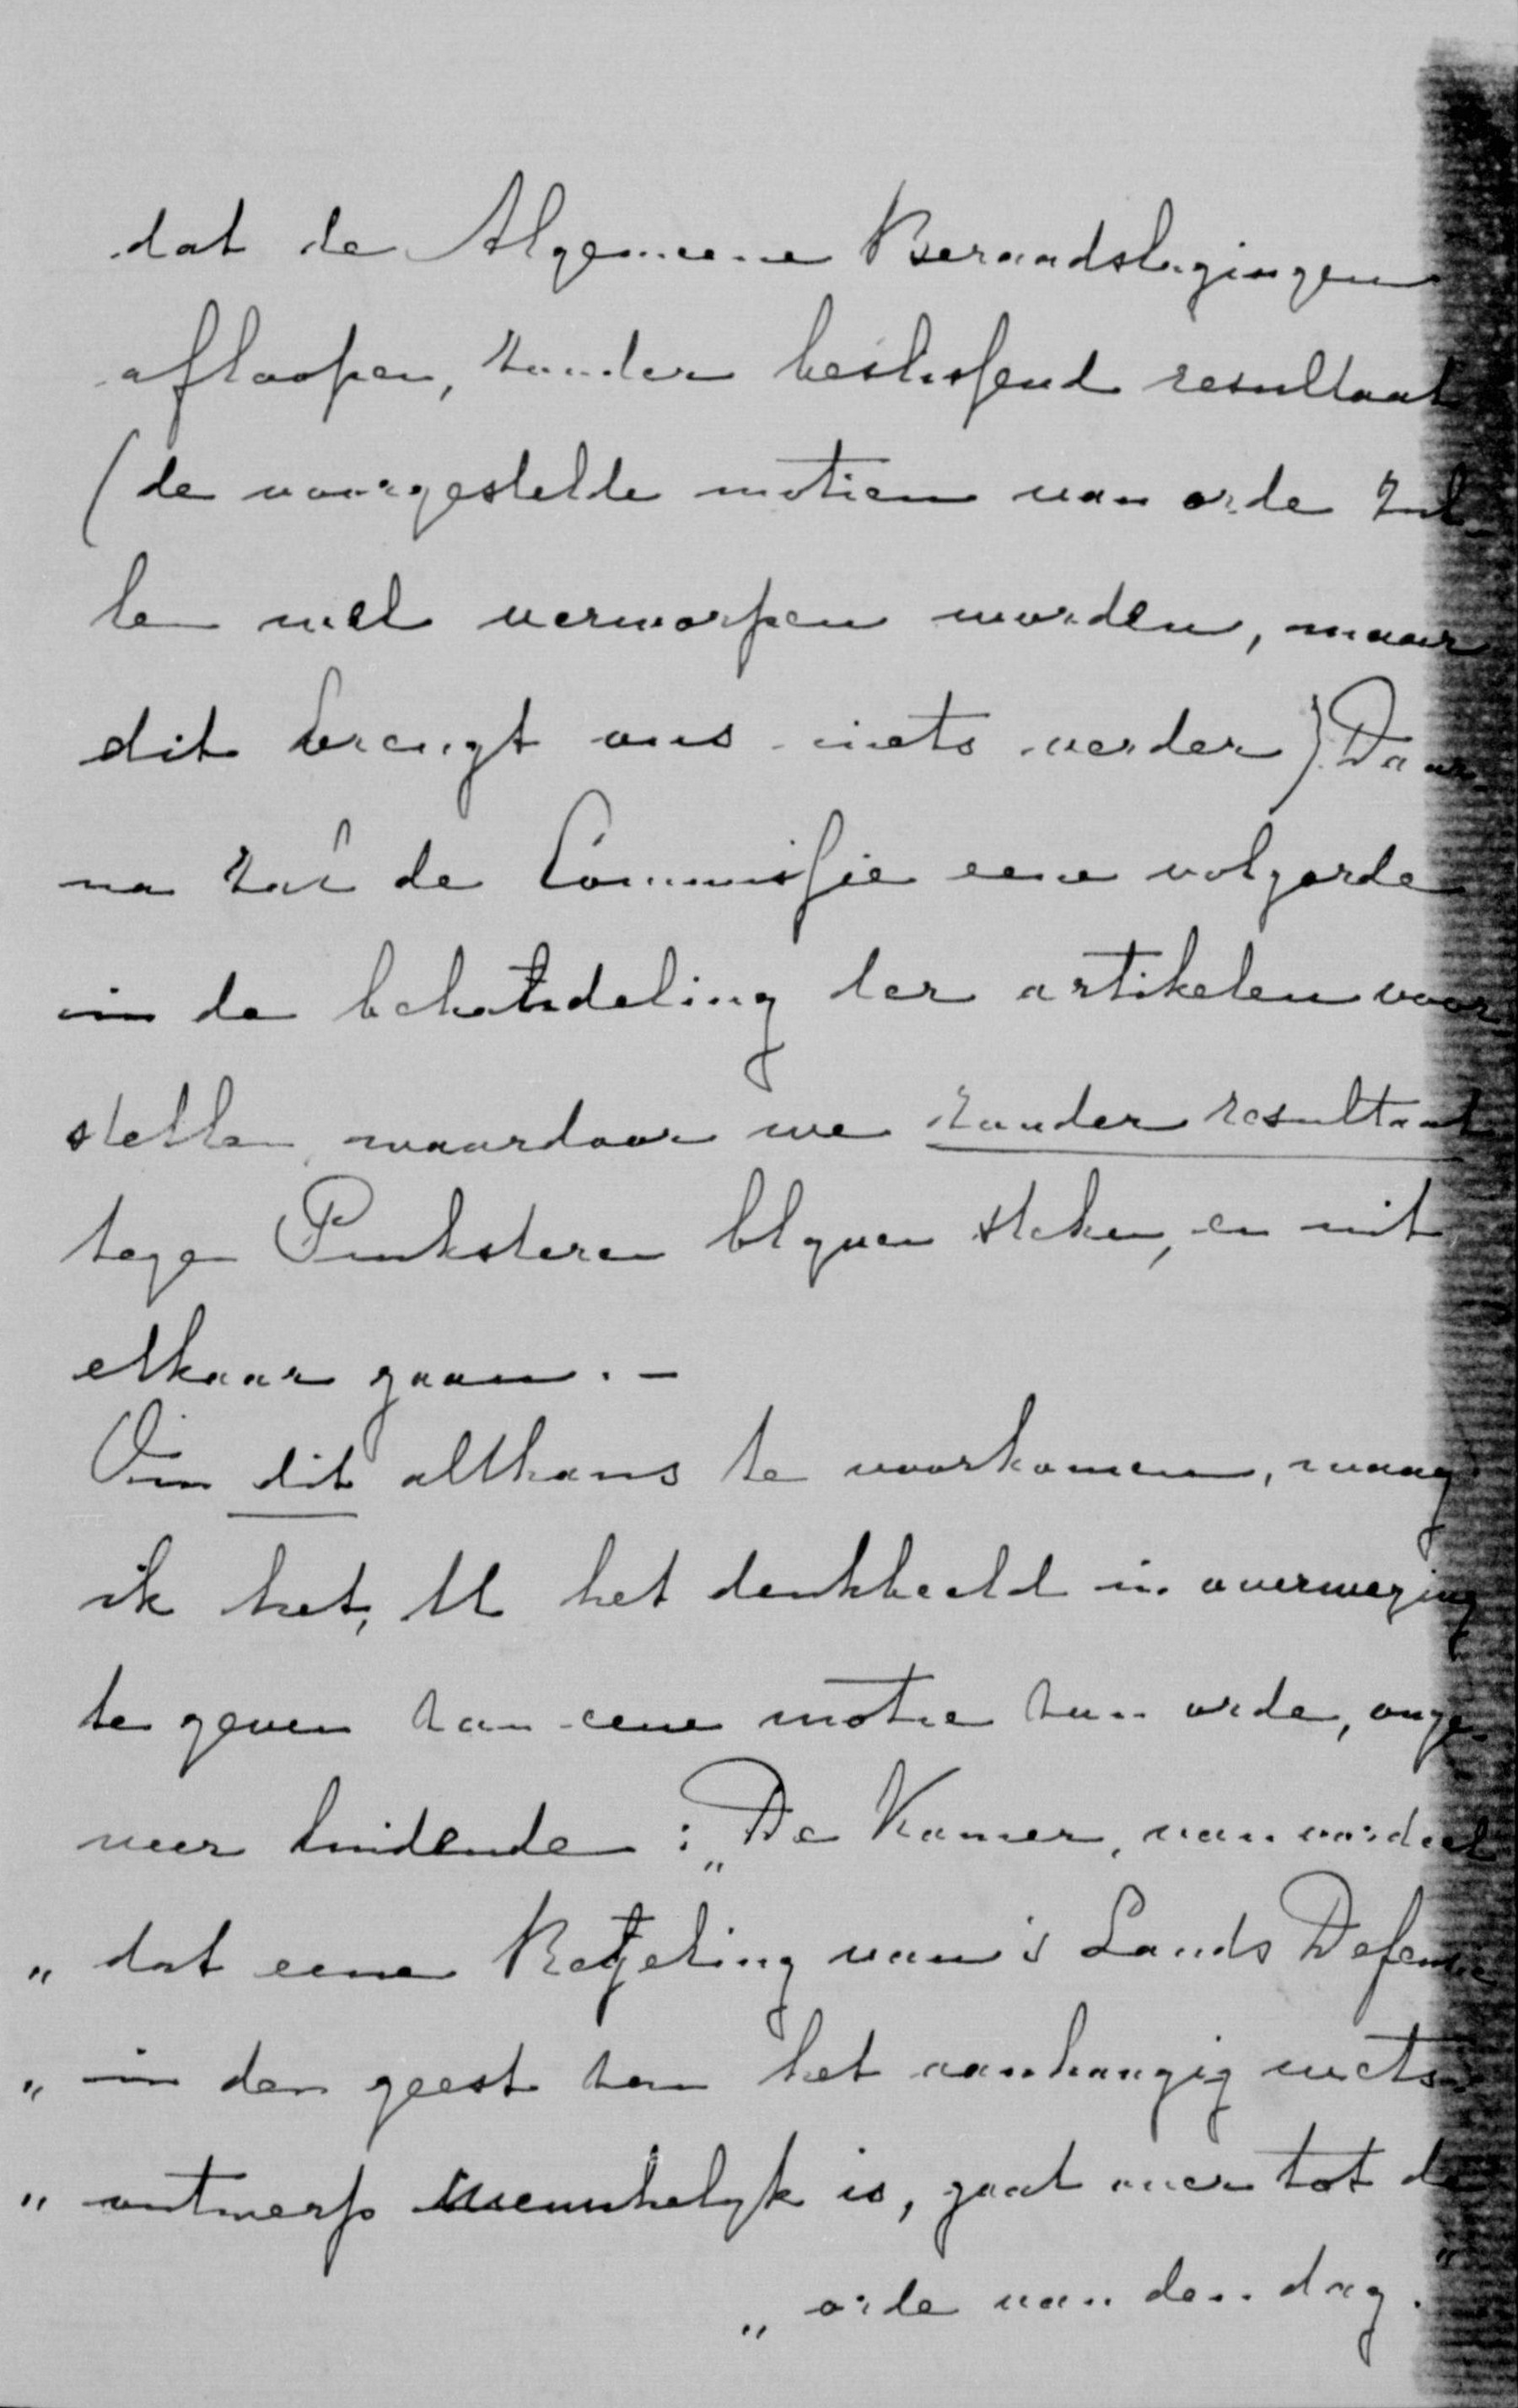 dat de Algemeene Beraadslagingen
afloopen, zonder beslissend resultaat
(de voorgestelde motien van orde zul-
len wel verworpen worden, maar
dit brengt ons niets verder). Daar-
na zal de Commissie eene volgorde
in de behandeling der artikelen voor-
stellen, waardoor we zonder resultaat
tegen Pinksteren blyven steken, en uit
elkaar gaan. –
Om dit althans te voorkomen, waag
ik het, U het denkbeeld in overweging
te geven van eene motie van orde, onge-
veer luidende: „De Kamer, van oordeel
„ dat eene Regeling van 's Lands Defensie
„ in den geest van het aanhangig wets-
„ ontwerp wenschelyk is, gaat over tot de
„ orde van den dag."